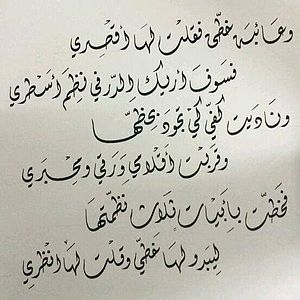 وعائبة خطّي فقلت لها أقصري
فسوف أريك الدّر في نظم أسطري
وناديت كفّي كي تجود بخطّها
وقربت أقلامي ورقّي ومحبري
فخطّت بأبيات ثلاث نظمتها
ليبدو لها خطّي وقلت لها انظري